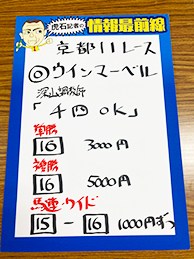 虎石記者の
情報最前線
京都11レース
◎ウインマーベル
深山調教師
「千四OK」
単勝
16 3000円
複勝
16 5000円
馬連・ワイド
15-16 1000円ずつ